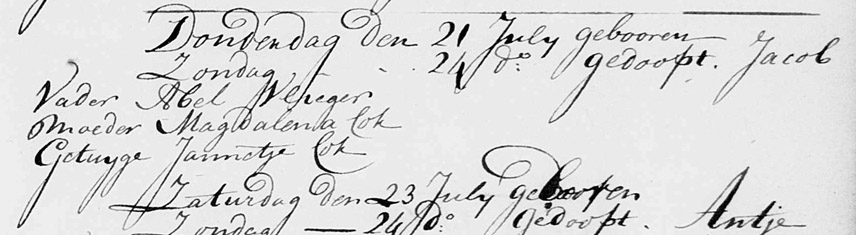 Donderdag den 21 July gebooren
Zondag - - 24 do. gedoopt. Jacob
Vader Abel Weneger
Moeder Magdalena Cok
Getuyge Jannetje Cok
Zaturdag den 23 July gebooren
Zondag — 24 do. gedoopt. Antje